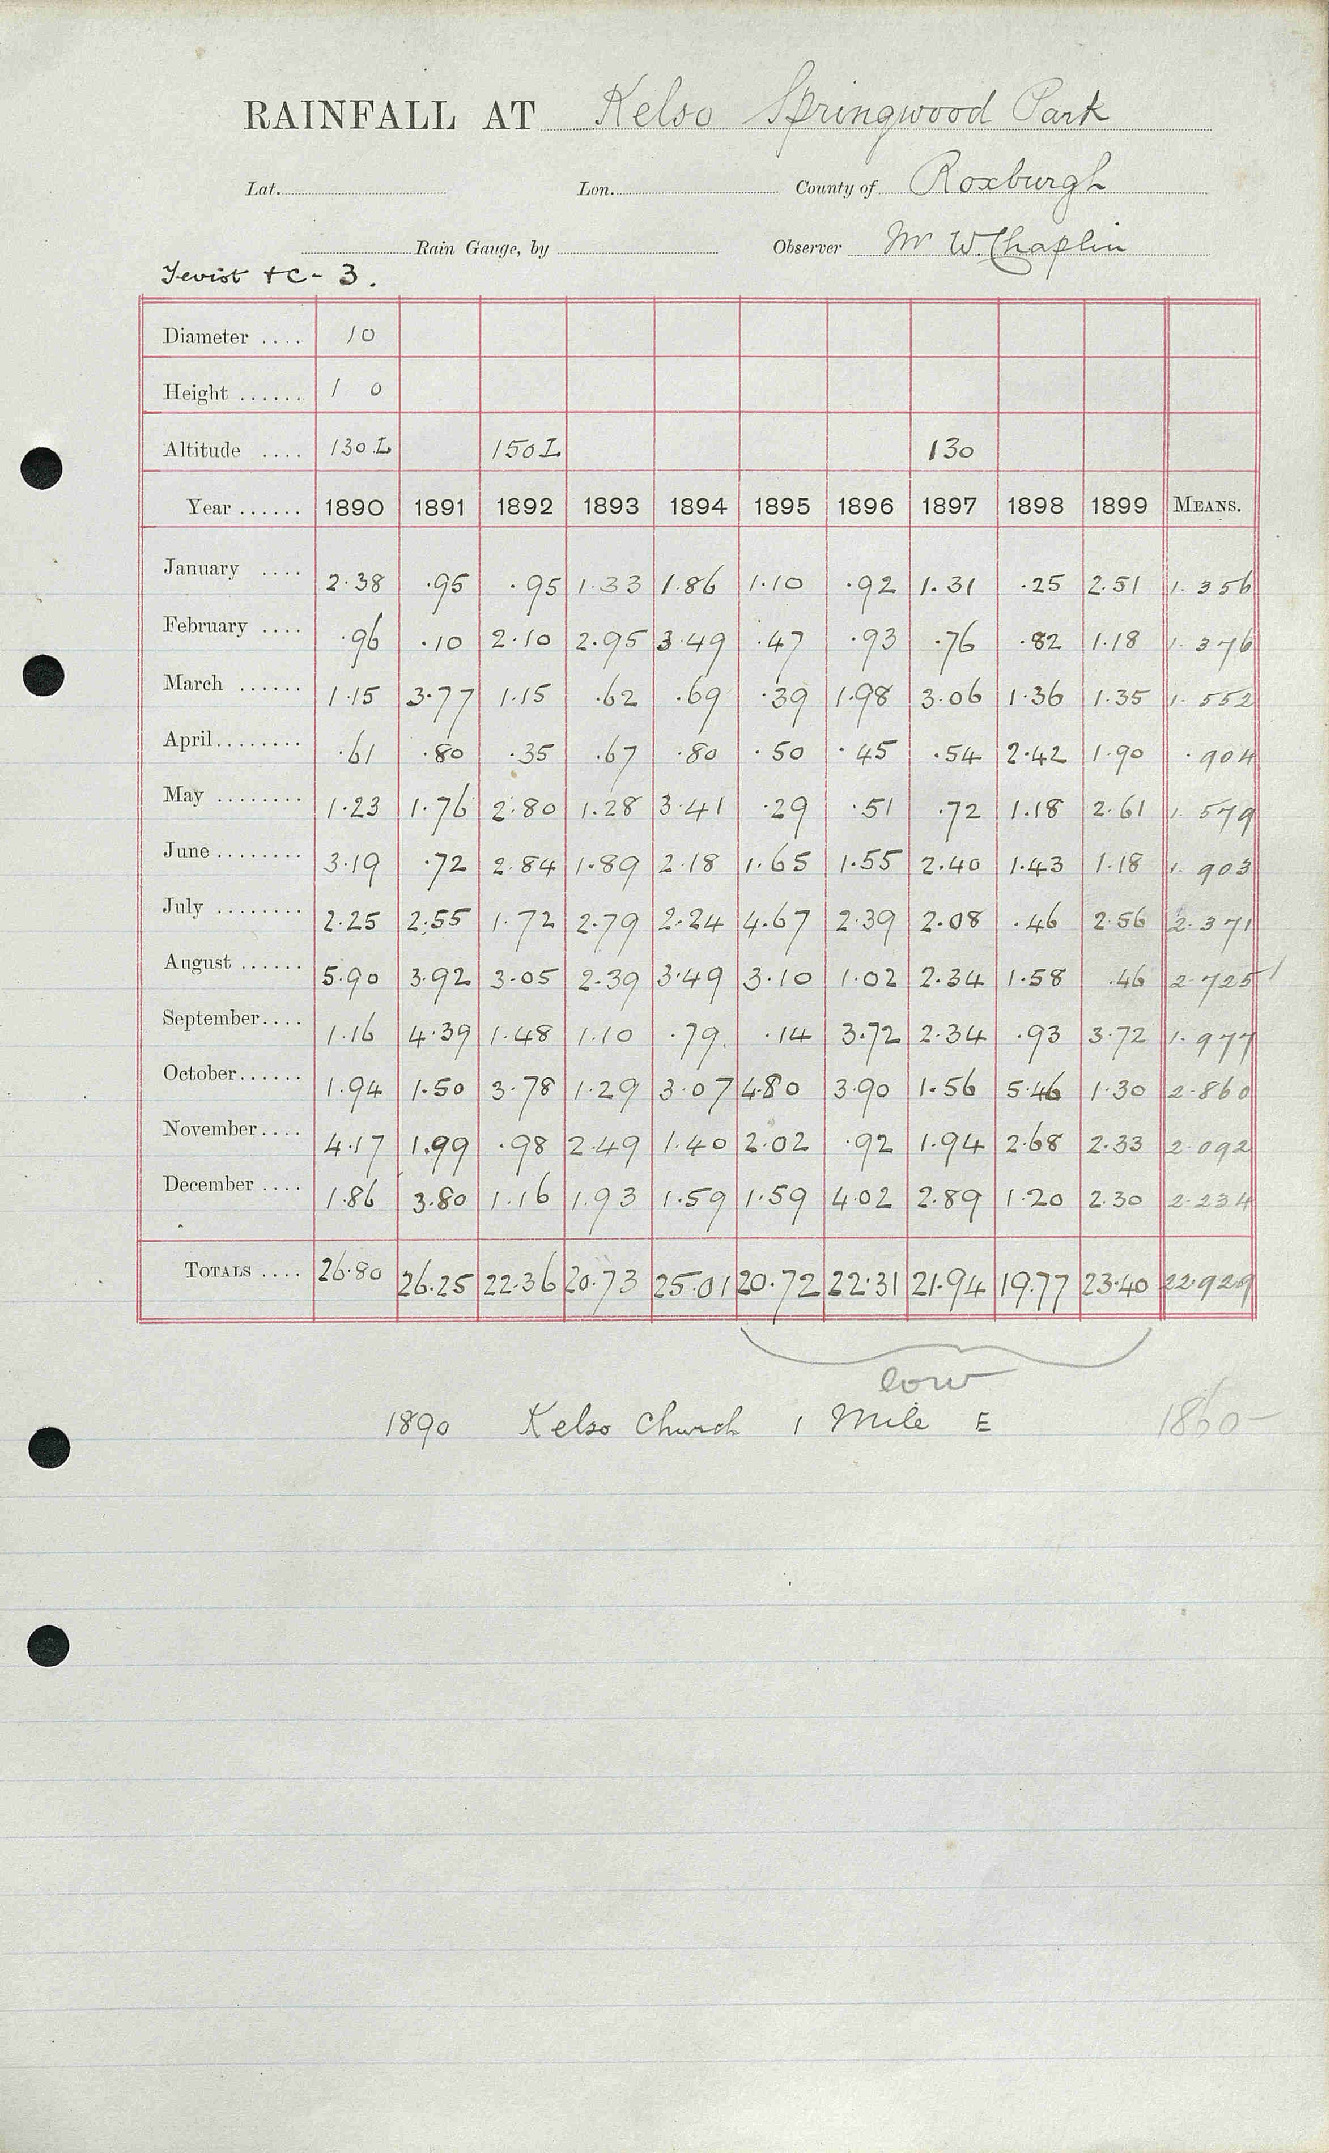 RAINFALL AT Kelso Springwood Park
Lat. Lon. County of Roxburgh
Rain Gauge, by Observer Mr W. Chaplin
Teviot &c - 3.
Diameter .... 10
Height ...... 1 0
Altitude .... 130 L 150 L 130
Year ...... 1890 1891 1892 1893 1894 1895 1896 1897 1898 1899 MEANS.
January .... 2.38 .95 .95 1.33 1.86 1.10 .92 1.31 .25 2.51 1.356
February .... .96 .10 2.10 2.95 3.49 .47 .93 .76 .82 1.18 1.376
March ...... 1.15 3.77 1.15 .62 .69 .39 1.98 3.06 1.36 1.35 1.552
April ........ .61 .80 .35 .67 .80 .50 .45 .54 2.42 1.90 .904
May ........ 1.23 1.76 2.80 1.28 3.41 .29 .51 .72 1.18 2.61 1.579
June ........ 3.19 .72 2.84 1.89 2.18 1.65 1.55 2.40 1.43 1.18 1.903
July ........ 2.25 2.55 1.72 2.79 2.24 4.67 2.39 2.08 .46 2.56 2.371
August ...... 5.90 3.92 3.05 2.39 3.49 3.10 1.02 2.34 1.58 .46 2.725
September .... 1.16 4.39 1.48 1.10 .79 .14 3.72 2.34 .93 3.72 1.977
October ...... 1.94 1.50 3.78 1.29 3.07 4.80 3.90 1.56 5.46 1.30 2.860
November .... 4.17 1.99 .98 2.49 1.40 2.02 .92 1.94 2.68 2.33 2.092
December .... 1.86 3.80 1.16 1.93 1.59 1.59 4.02 2.89 1.20 2.30 2.234
TOTALS .... 26.80 26.25 22.36 20.73 25.01 20.72 22.31 21.94 19.77 23.40 22.929
low
1890 Kelso Church 1 Mile E 1860-